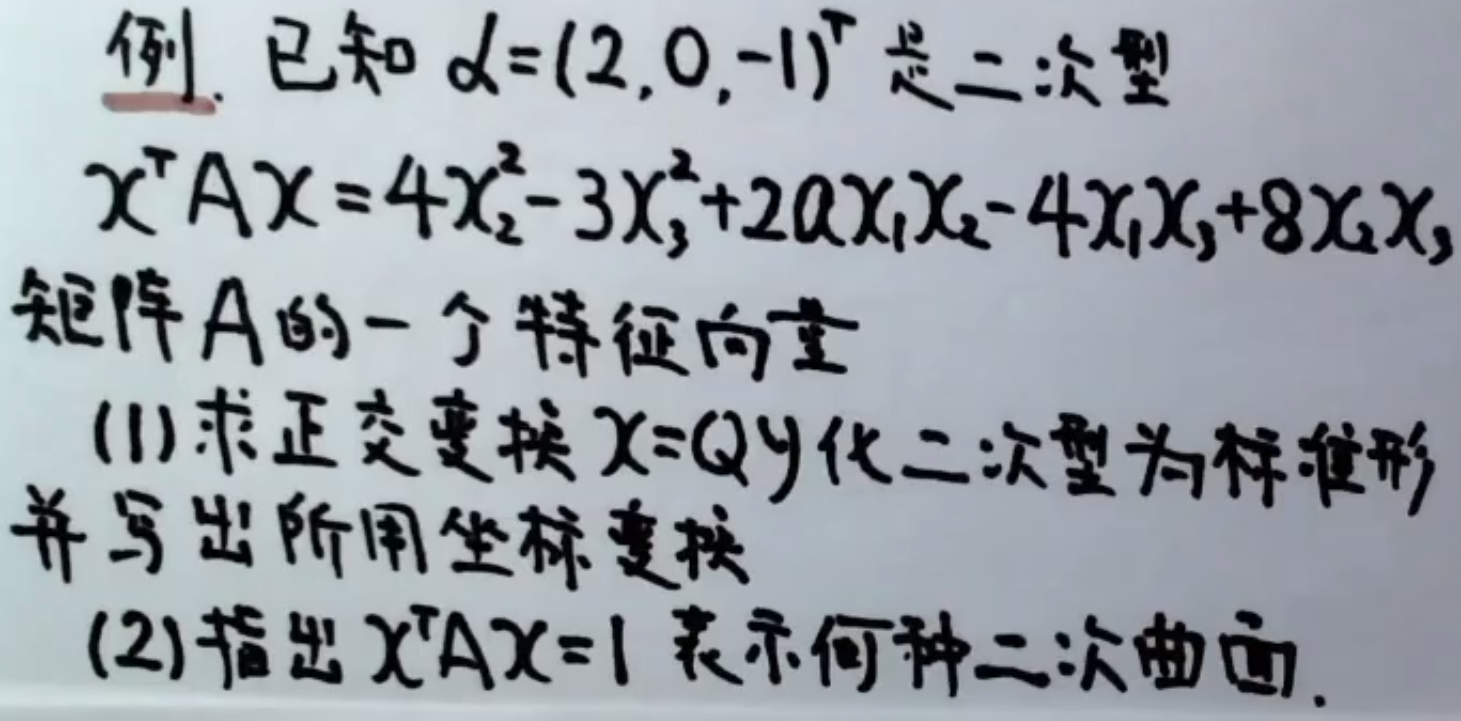 例. 已知 α=(2,0,-1)ᵀ 是二次型
xᵀAx=4x₂²-3x₃²+2ax₁x₂-4x₁x₃+8x₂x₃
矩阵A的一个特征向量
(1)求正交变换 x=Qy化二次型为标准形
并写出所用坐标变换
(2)指出xᵀAx=1 表示何种二次曲面.